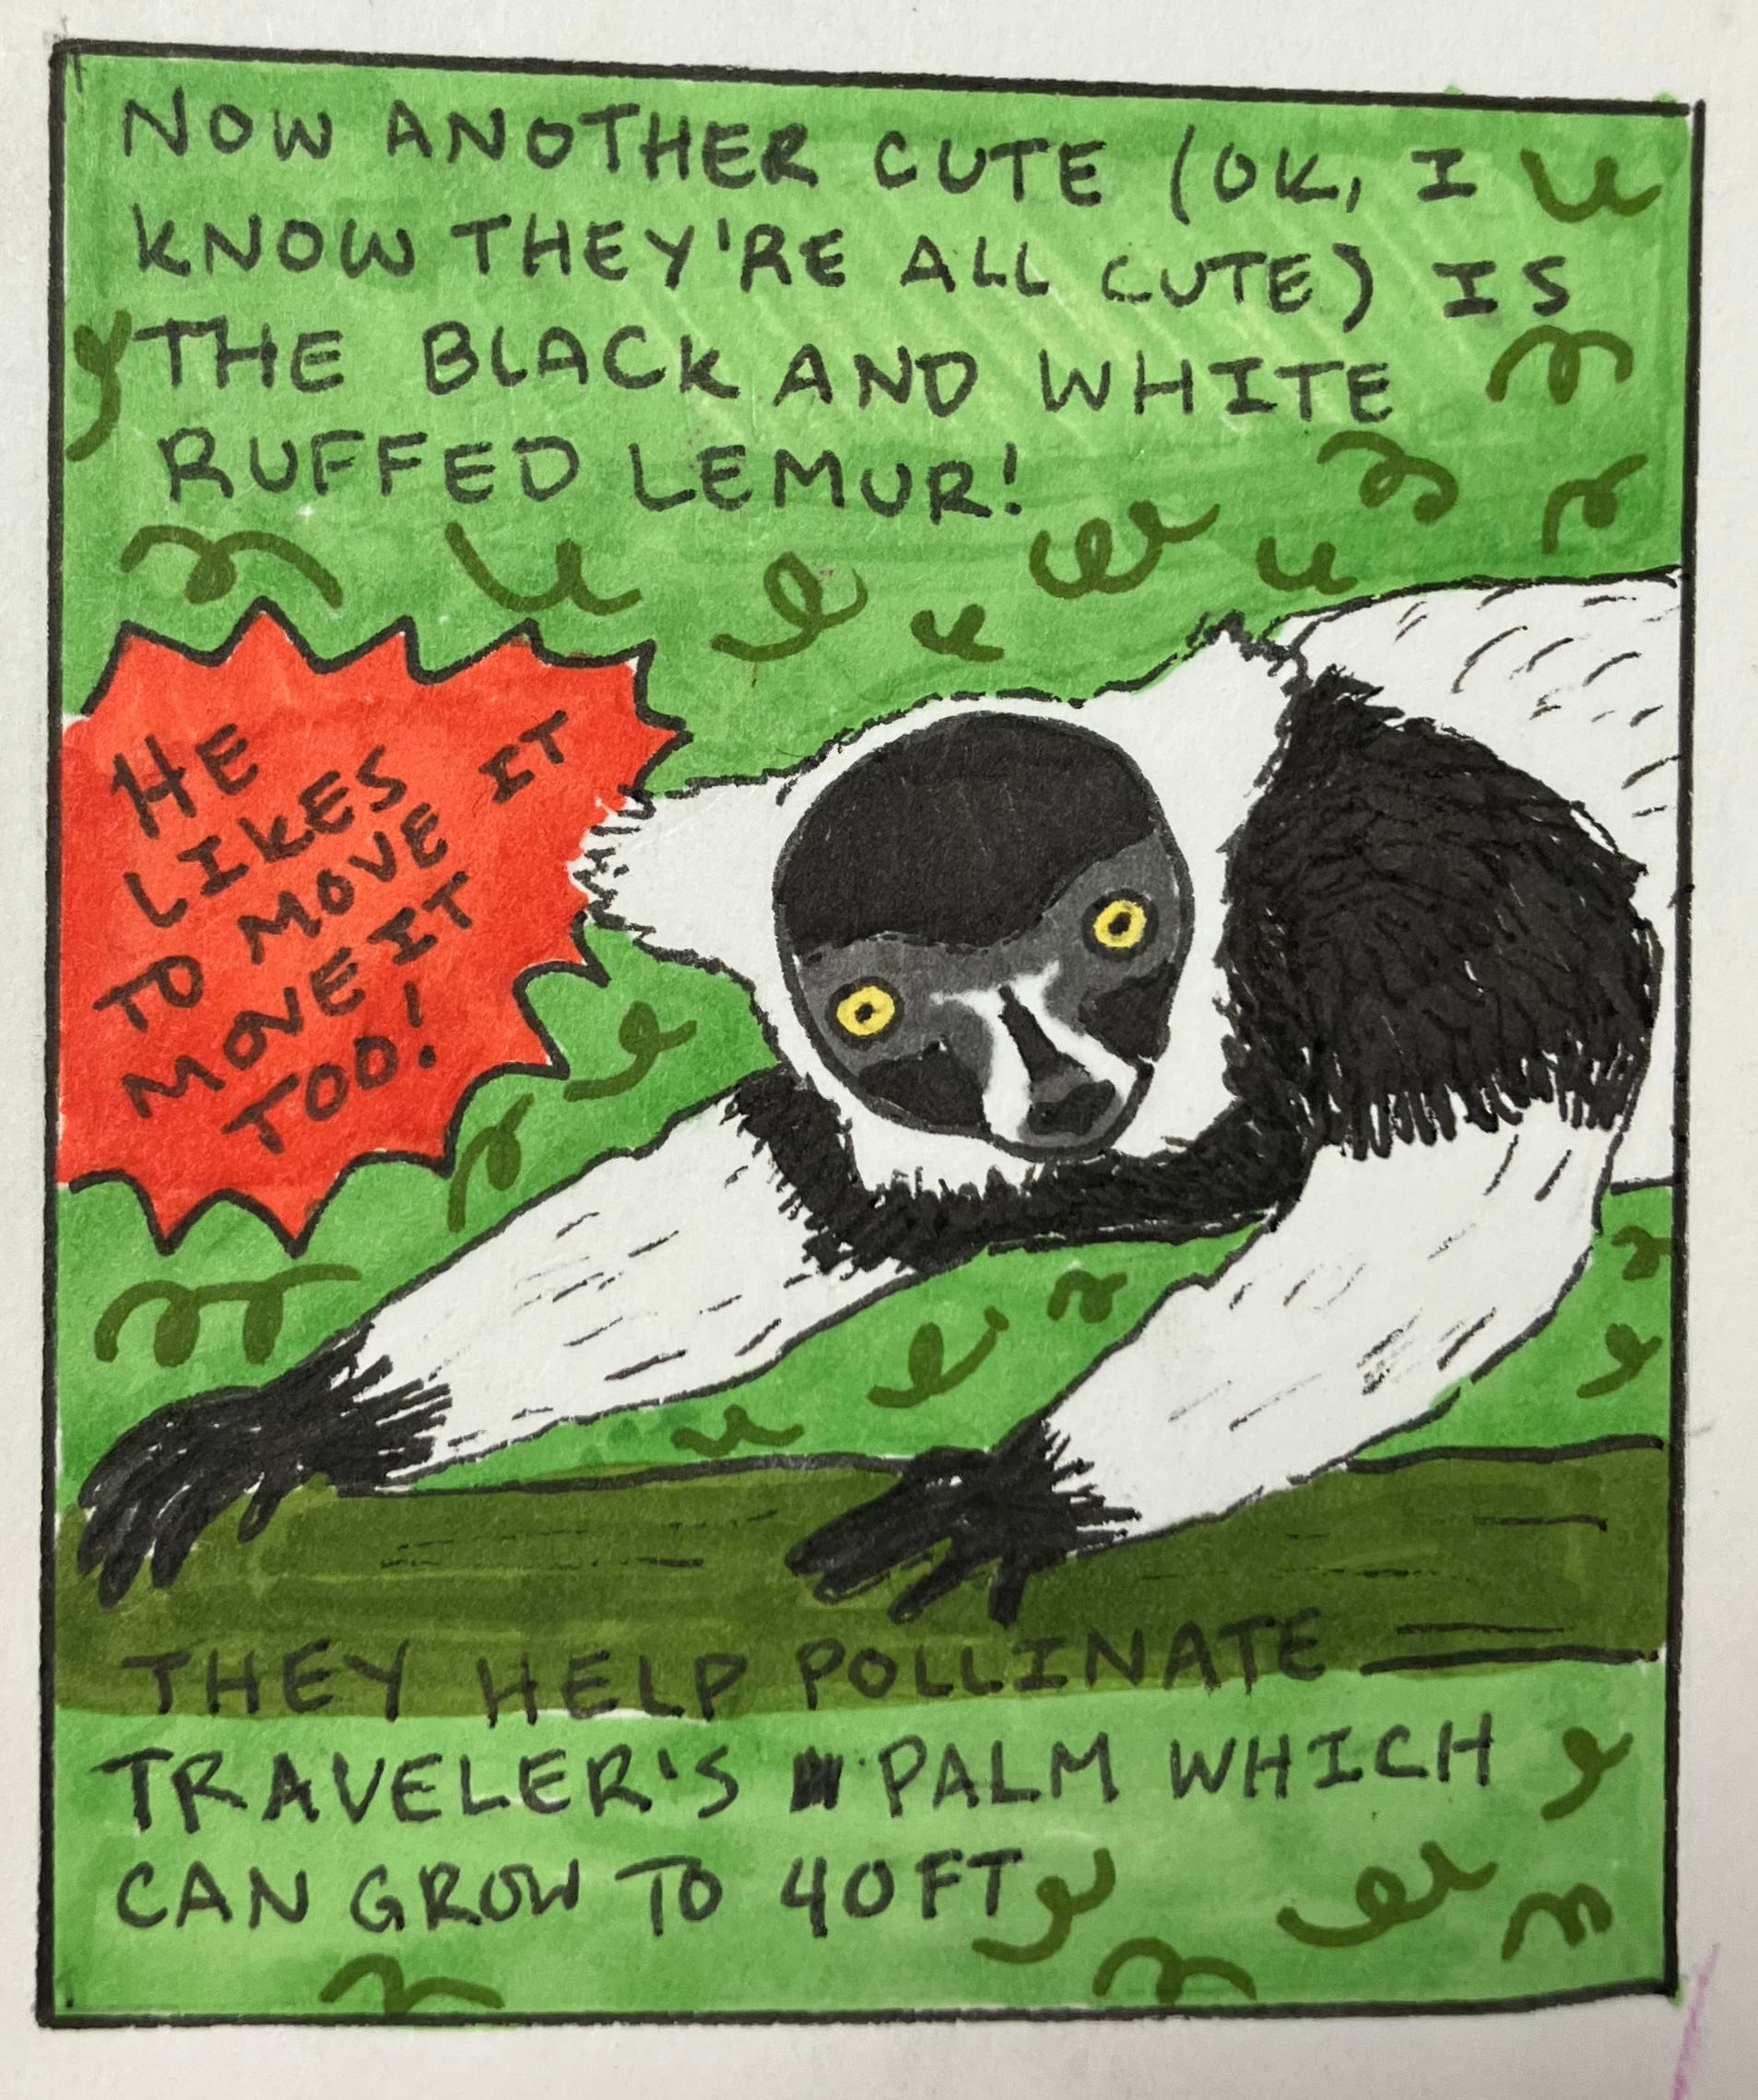 NOW ANOTHER CUTE (OK, I
KNOW THEY'RE ALL CUTE) IS
THE BLACK AND WHITE
RUFFED LEMUR!
HE
LIKES
TO MOVE IT
MOVE IT
TOO!
THEY HELP POLLINATE
TRAVELER'S PALM WHICH
CAN GROW TO 40FT